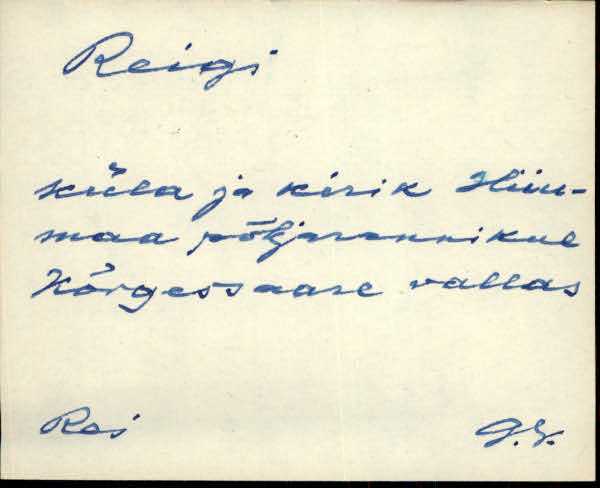 Reigi
küla ja kirik Hiiu-
maa põhjarannikul
Kõrgessaare vallas
Rei